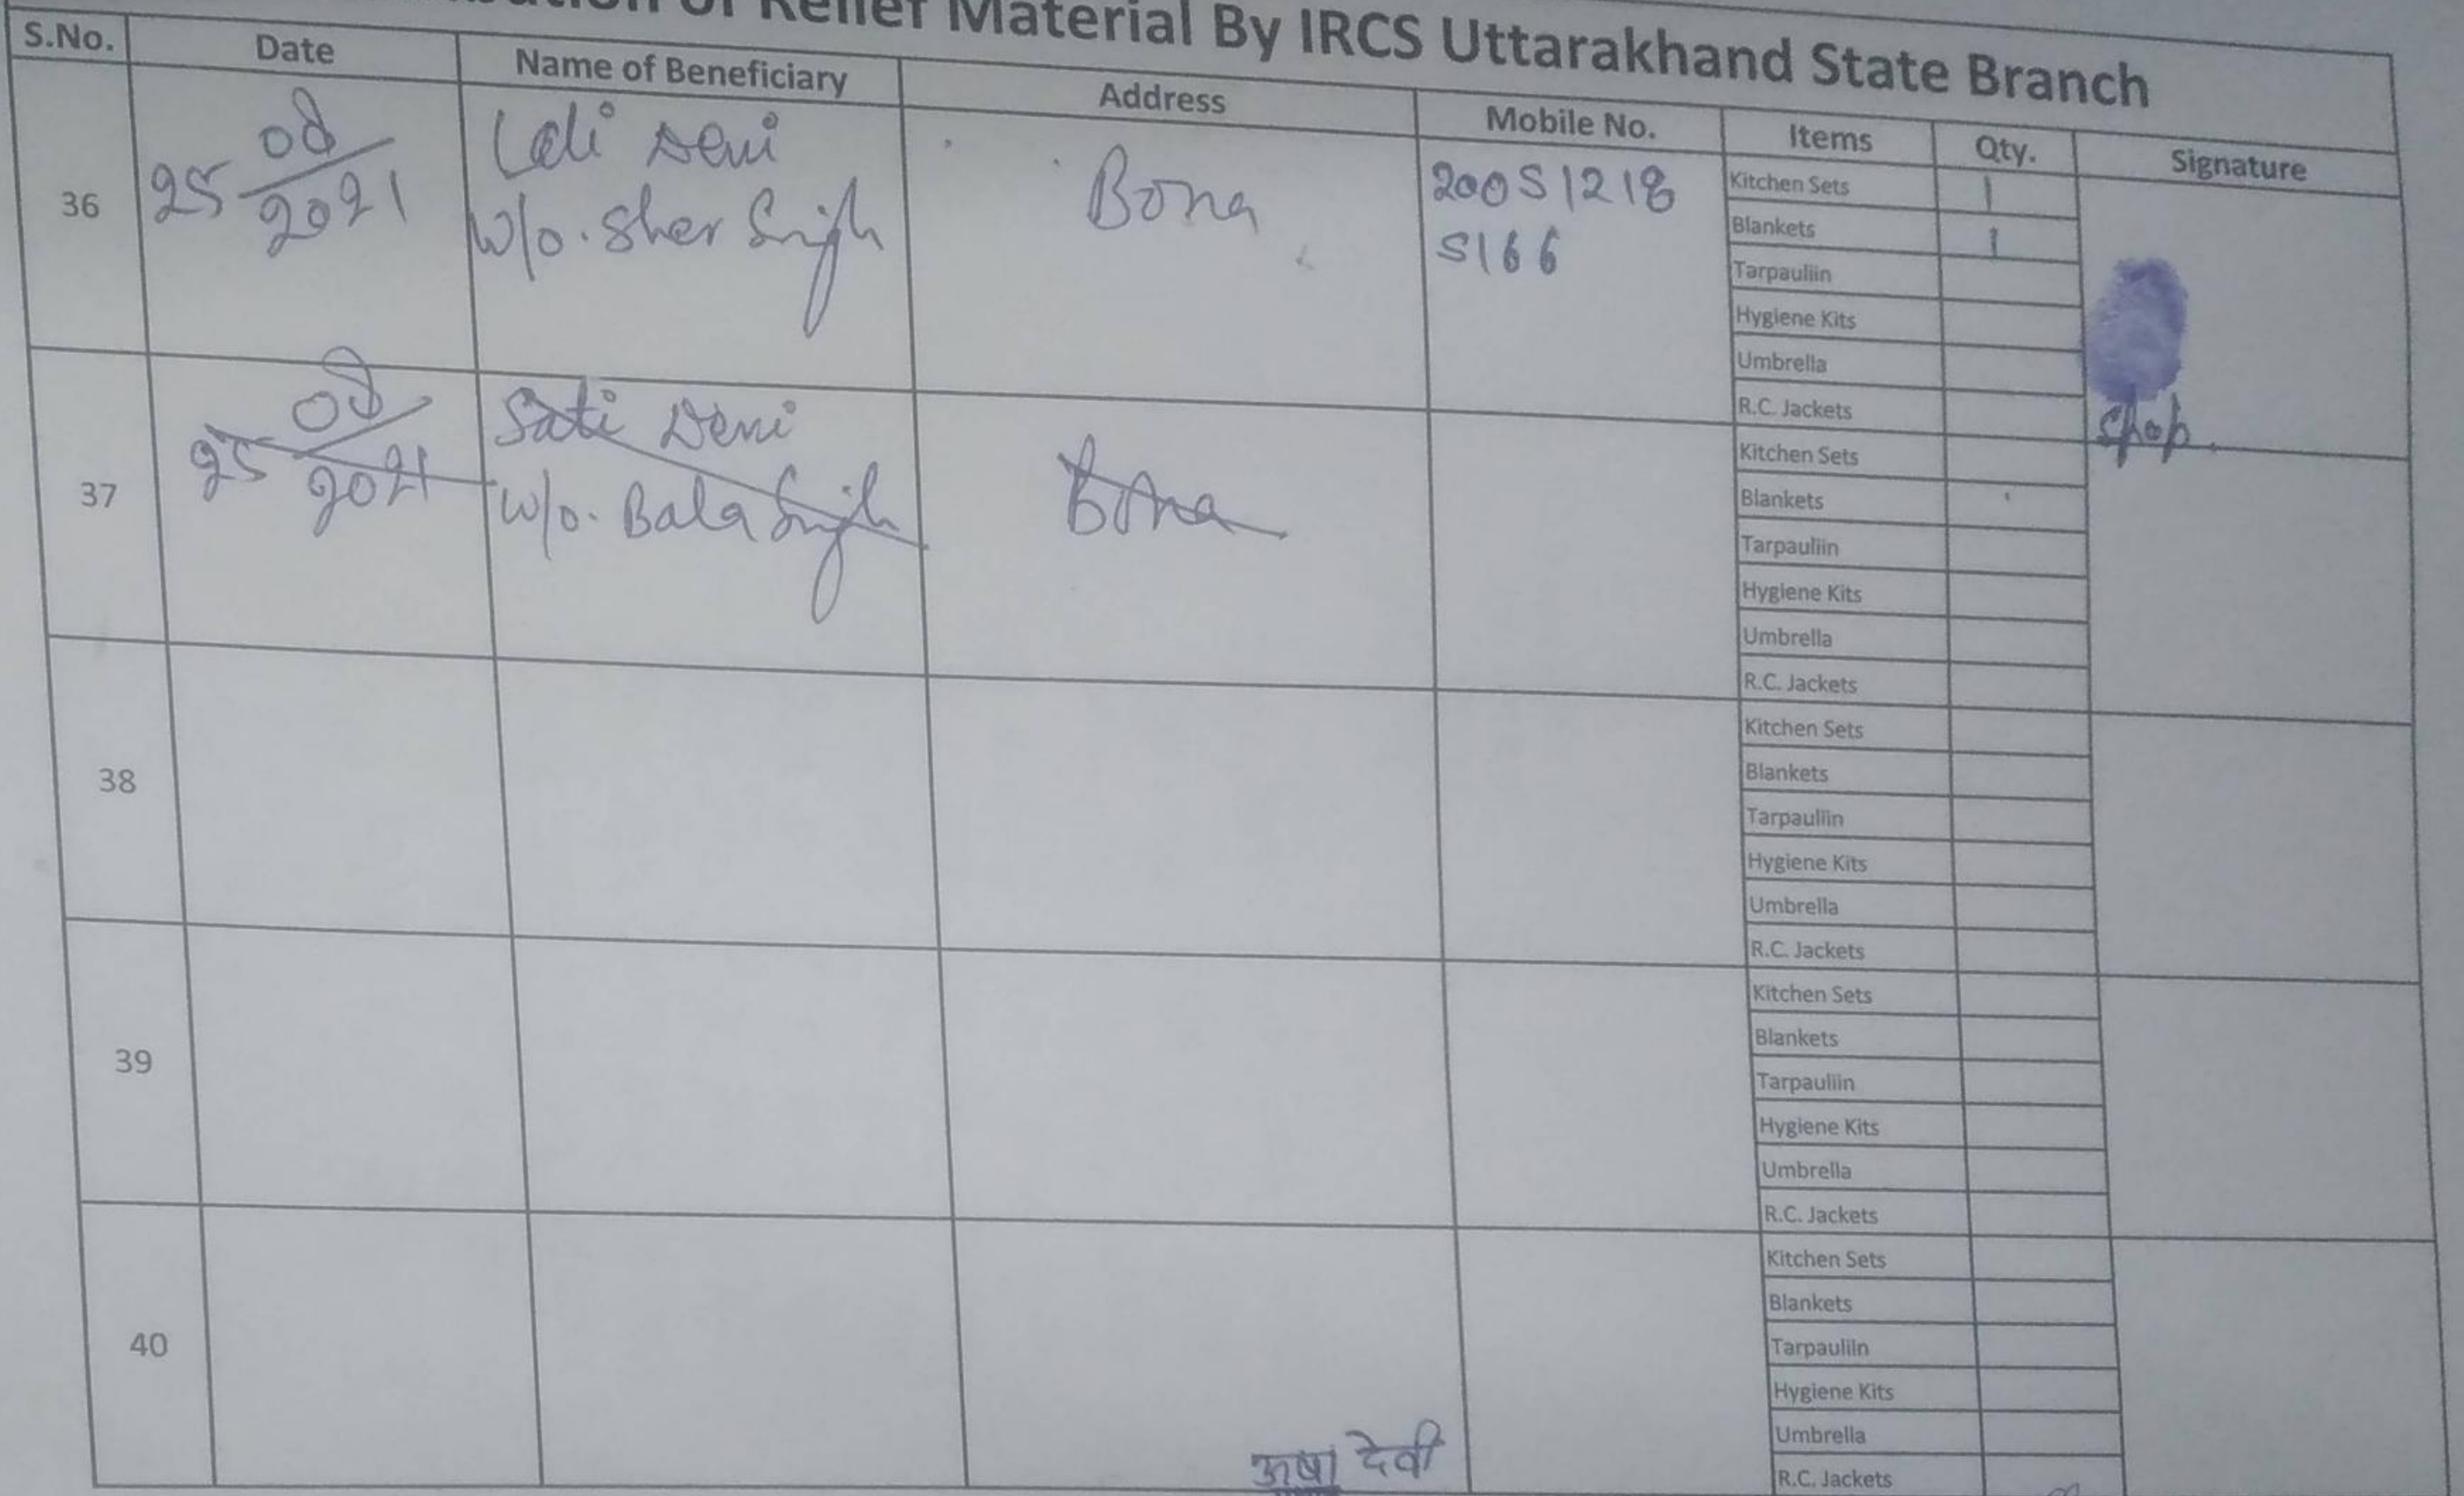 of Relief Material By IRCS Uttarakhand State Branch
S.No. Date Name of Beneficiary Address Mobile No. Items Qty. Signature
36 25 08/2021 Lali Devi Bona 20051218 Kitchen Sets 1
w/o. Sher Singh 5166 Blankets 1
Tarpauliin
Hygiene Kits
Umbrella
R.C. Jackets
37 25 08/2021 Sati Devi Bona Kitchen Sets
w/o. Bala Singh Blankets
Tarpauliin
Hygiene Kits
Umbrella
R.C. Jackets
38 Kitchen Sets
Blankets
Tarpauliin
Hygiene Kits
Umbrella
R.C. Jackets
39 Kitchen Sets
Blankets
Tarpauliin
Hygiene Kits
Umbrella
R.C. Jackets
40 Kitchen Sets
Blankets
Tarpauliin
Hygiene Kits
Umbrella
R.C. Jackets
ऊषा देवी